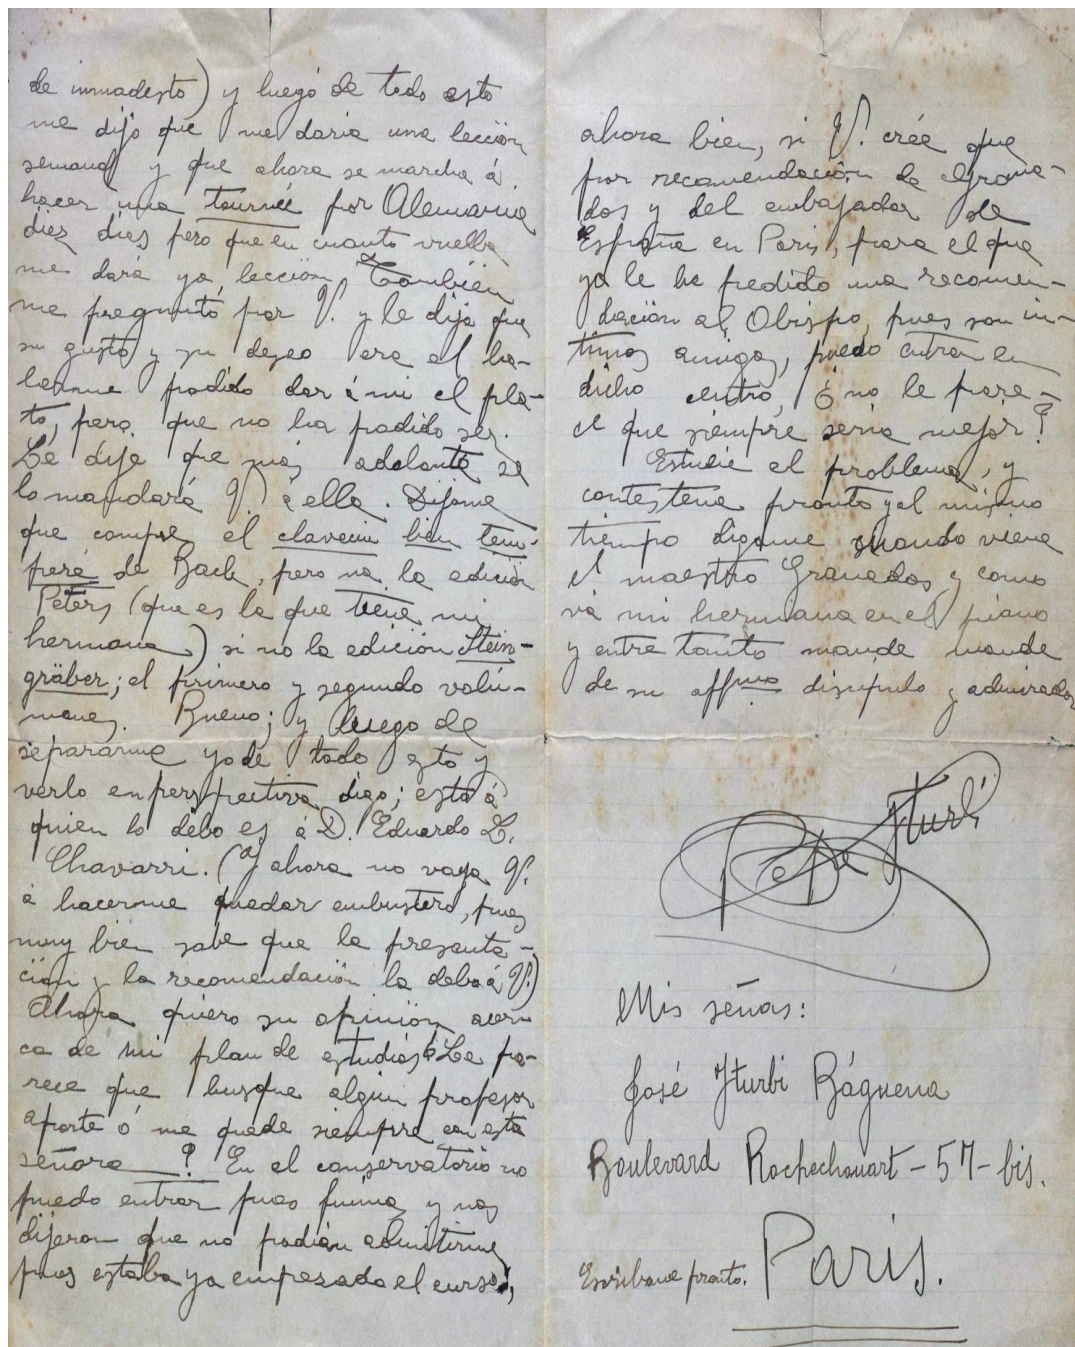 de inmodesto) y luego de todo esto
me dijo que me daria una lección
semanal y que ahora se marcha á
hacer una tournée por Alemania
diez dias pero que en cuanto vuelba
me dará ya lección. Tambien
me preguntó por V. y le dije que
su gusto y su deseo era el ha-
berme podido dar á mi el pla-
to, pero que no ha podido ser.
Le dije que más adelante se
lo mandará V. á ella. Díjome
que compre el clavecin bien tem-
peré de Bach, pero no la edición
Peters (que es la que tiene mi
hermana) si no la edición Stein-
gräber; el primero y segundo volú-
menes. Bueno; y luego de
separarme yo de todo esto y
verlo en perspectiva digo; esto á
quien lo debo es á D. Eduardo L.
Chavarri. (Y ahora no vaya V.
á hacerme quedar embustero, pues
muy bien sabe que la presenta-
ción y la recomendación la debo á V.)
Ahora quiero su opinión acer-
ca de mi plan de estudios ¿Le pa-
rece que busque algun profesor
aparte ó me quede siempre con esta
señora? En el conservatorio no
puedo entrar pues fuimos y nos
dijeron que no podian admitirme
pues estaba ya empezado el curso;
ahora bien, si V. crée que
por recomendación de Grana-
dos y del embajador de
España en Paris, para el que
ya le he pedido una recomen-
dación al Obispo, pues son in-
timos amigos, puedo entrar en
dicho centro, ¿no le pare-
ce que siempre seria mejor?
Estudie el problema, y
contésteme pronto y al mismo
tiempo digame cuando viene
el maestro Granados, y como
vá mi hermana en el piano
y entre tanto mande mande
de su affmo discipulo y admirador
Pepe Iturbi
Mis señas:
José Iturbi Báguena
Boulevard Rochechouart – 57 – bis.
Escribame pronto. Paris.